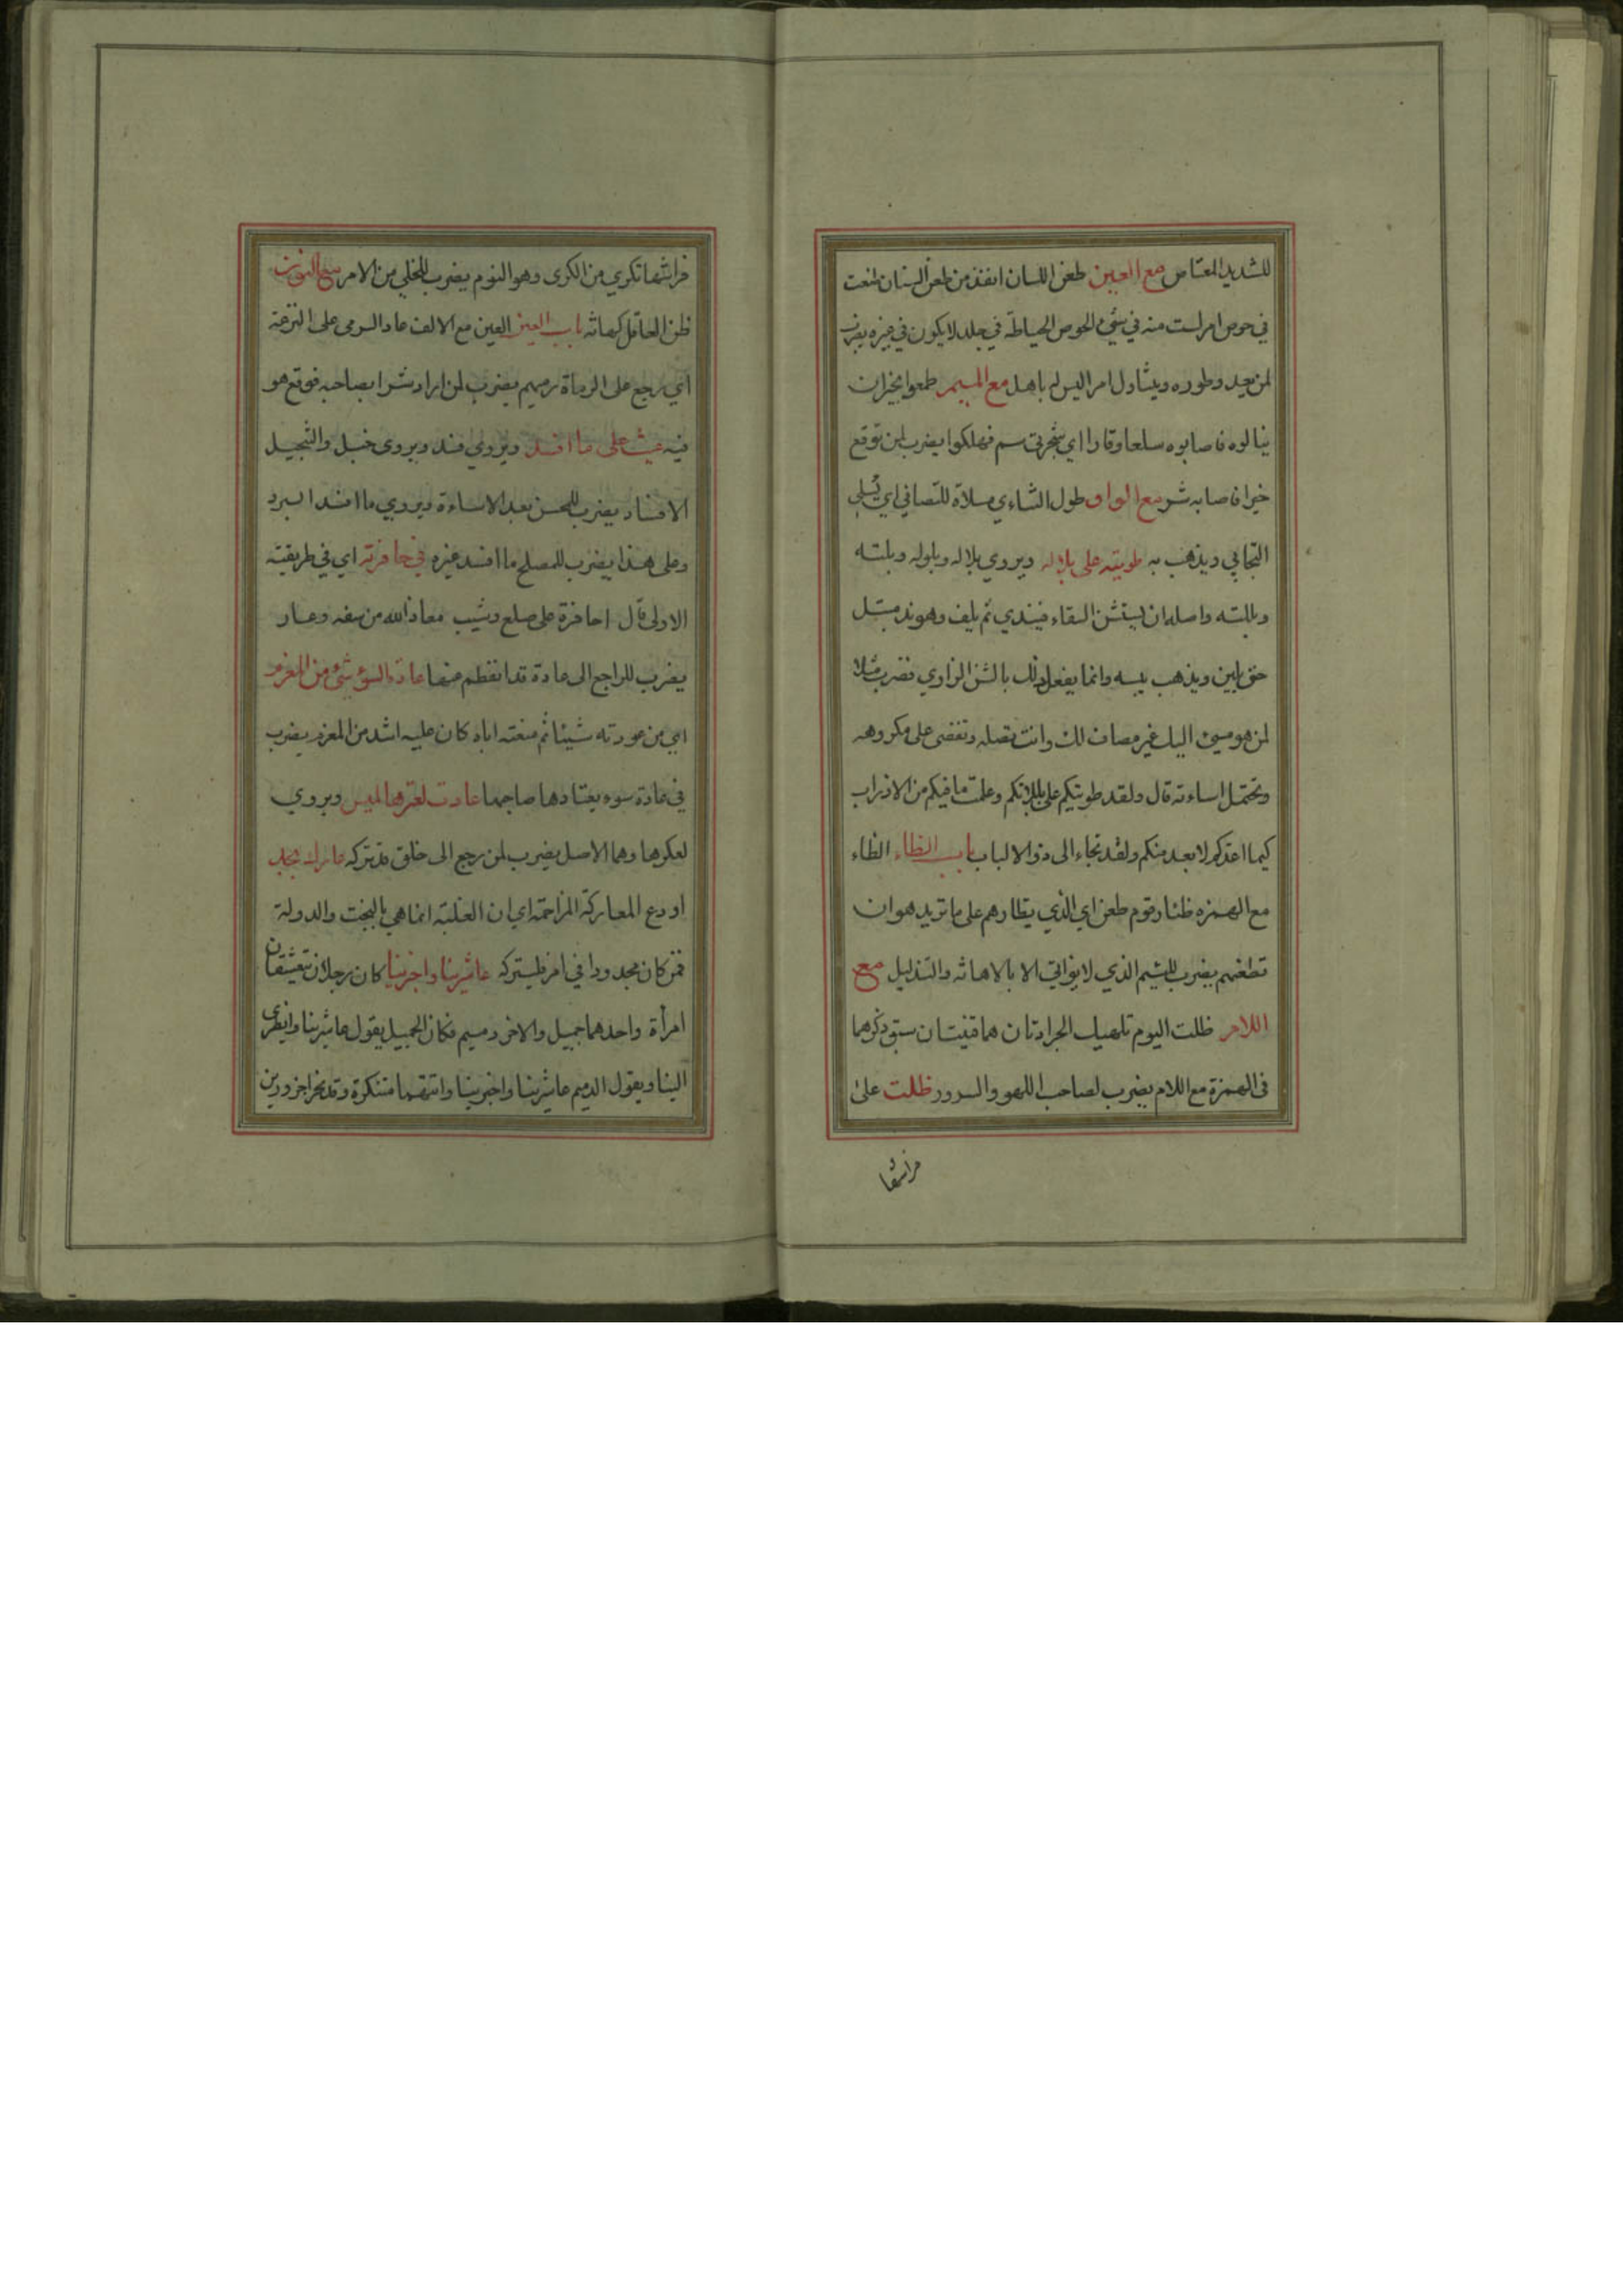 للشديد المعتاص مع العين طعن اللسان انفذ من طعن السنان طعنت
في حوص امر لست منه في شئ الحوص الحياطة في جلد لا يكون في غيره يضرب
لمن يعد وطوره ويتناول امرا ليس له باهل مع الميم طمعوا بخير ان
ينالوه فاصابوه سلعا وقارا اي شجرتي سم فهلكوا يضرب لمن توقع
خيرا فاصابه شر مع الواو طول التنائي مسلاة للتصافي اي يُسلي
التجافي ويذهب به طويته على بلاله ويروي بلاله وبلوله وبلته
وبللته واصله ان يستشن السقاء فيندي ثم يلف وهو ند مبتل
حتى يلين ويذهب يبسه وانما يفعل ذلك بالشن الزاوي فضرب مثلا
لمن هو مسئ اليك غير مصاف لك وانت تصله وتغضي على مكروهه
وتحتمل اساءته قال ولقد طويتكم على بللاتكم وعلمت ما فيكم من الاذراب
كيما اعدكم لابعد منكم ولقد تجاء الى ذو الالباب باب الظاء الظاء
مع الهمزه ظئار قوم طعن اي الذي يظارهم على ما تريد هو ان
تطعنهم يضرب للئيم الذي لا يواتي الا بالاهانة والتذليل مع
اللام ظلت اليوم تلهيك الجرادتان هما قينتان سبق ذكرهما
في الهمزة مع اللام يضرب لصاحب اللهو والسرور ظلت على
فراشها
فراشها تكري من الكرى وهو النوم يضرب للخلي من الامر مع النون
ظن العاقل كهانة باب العين العين مع الالف عاد الرمى على النزعة
اي رجع على الرماة رميهم يضرب لمن اراد شرا بصاحبه فوقع هو
فيه غيث على ما افسد ويروي فند ويروى خبل والتخبيل
الافساد يضرب للمحسن بعد الاساءة ويروي ما افسد البرد
وعلى هذا يضرب للمصلح ما افسد غيره في حافرته اي في طريقته
الاولى قال احافرة على صلع وشيب معاذ الله من سفه وعار
يضرب للراجع الى عادة قد انفطم عنها عادة السوء شئ من المغرم
اي من عودته شيئا ثم منعته اياه كان عليه اشد من المغرم يضرب
في عادة سوء يعتادها صاحبها عادت لعترها لميس ويروي
لعكرها وهما الاصل يضرب لمن رجع الى خلق قد تركه عارك بجد
او دع المعاركة المزاحمة اي ان الغلبة انما هي بالبخت والدولة
فمن كان مجدودا في امر فليتركه عاشرينا واخبرينا كان رجلان يتعشقان
امرأة واحدهما جميل والاخر دميم فكان الجميل يقول عاشرينا وانظرى
الينا ويقول الدميم عاشرينا واخبرينا واتتهما متنكرة وقد نحرا جزورين